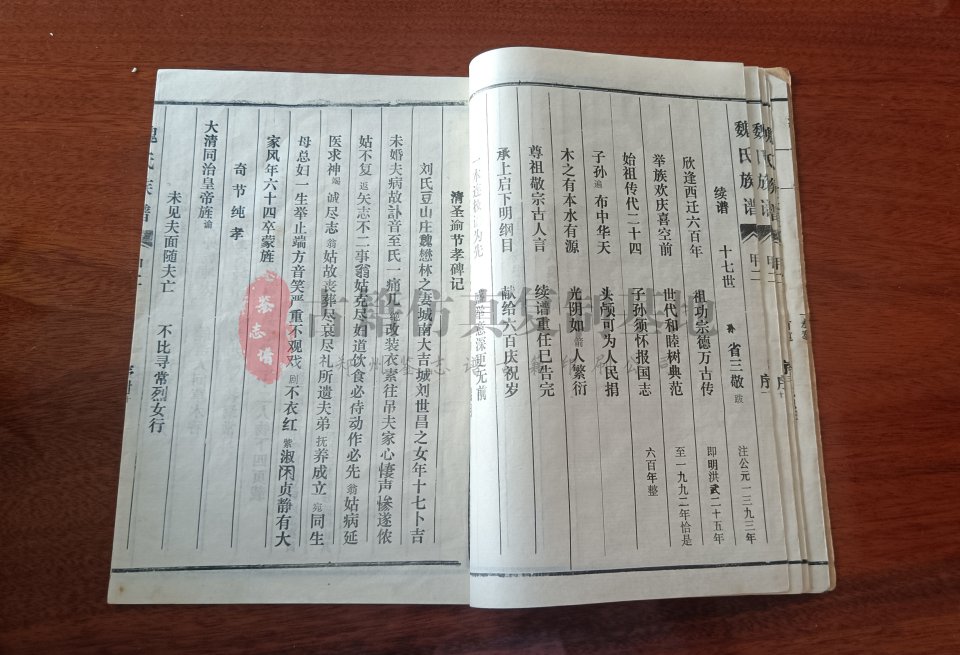 魏氏族谱
续谱 十七世 省三敬跋
欣逢西迁六百年 祖功宗德万古传
举族欢庆喜空前 世代和睦树典范
始祖传代二十四 子孙须怀报国志
子孙遍布中华天 头颅可为人民捐
木之有本水有源 光阴如箭人繁衍
尊祖敬宗古人言 续谱重任已告完
承上启下明纲目 献给六百庆祝岁
注公元一三九三年
即明洪武二十五年
至一九九二年恰是
六百年整
清圣谕节孝碑记
刘氏豆山庄魏懋林之妻城南大吉城刘世昌之女年十七卜吉
未婚夫病故讣音至氏一痛几绝改装衣素往吊夫家心悽声惨遂侬
姑不复返矢志不二事翁姑克尽妇道饮食必侍动作必先翁姑病延
医求神竭诚尽志翁姑故丧葬尽哀尽礼所遗夫弟抚养成立宛同生
母总妇一生举止端方音笑严重不观戏剧不衣红紫淑闲贞静有大
家风年六十四卒蒙旌
奇节纯孝
大清同治皇帝旌谕
未见夫面随夫亡 不比寻常烈女行
古籍仿真复制基地
鉴志谱